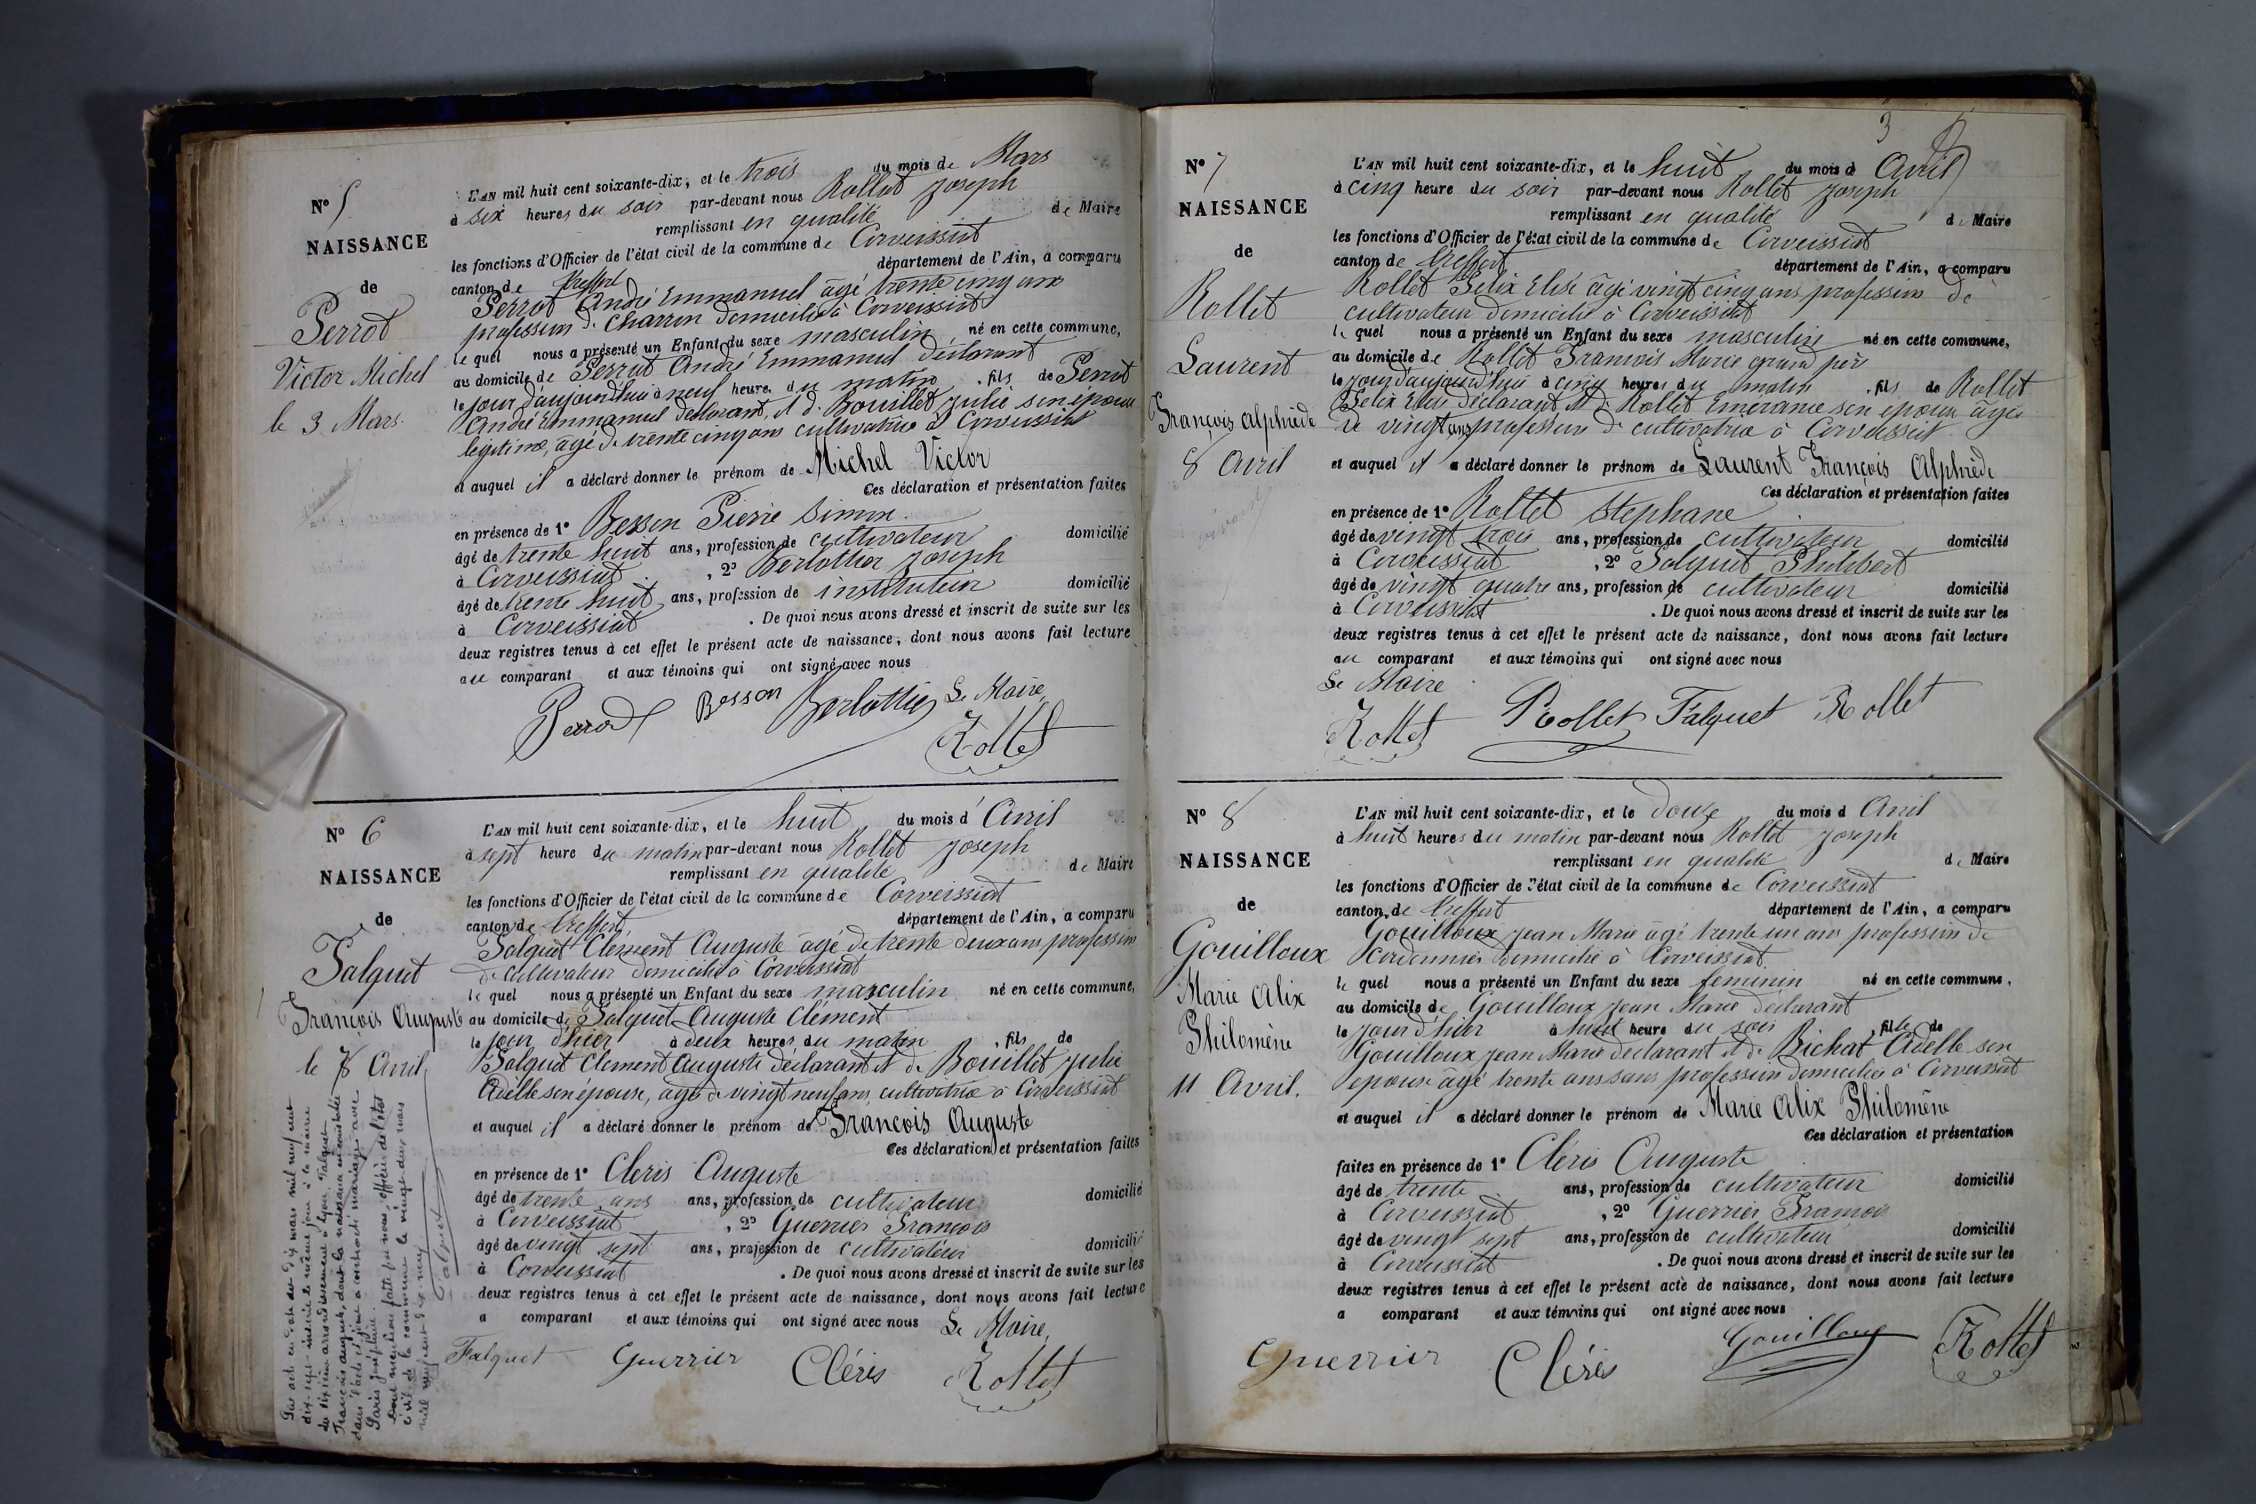 N° 5
NAISSANCE
de
Perrod
Victor Michel
le 3 Mars.
L'AN mil huit cent soixante-dix, et le trois du mois de Mars
à six heures du soir par-devant nous Rollet Joseph
remplissant en qualité de Maire
les fonctions d'Officier de l'état civil de la commune de Corveissiat
canton de Treffort département de l'Ain, a comparu
Perrod André Emmanuel âgé trente cinq ans
profession de Charron domicilié à Corveissiat
le quel nous a présenté un Enfant du sexe masculin né en cette commune,
au domicile de Perrod André Emmanuel déclarant
le jour d'aujourd'hui à neuf heures du matin, fils de Perrod
André Emmanuel déclarant, et de Bouillet Julie son epouse
legitime, âgé de trente cinq ans cultivatrice à Corveissiat
et auquel il a déclaré donner le prénom de Michel Victor
Ces déclaration et présentation faites
en présence de 1° Besson Pierre Simon
âgé de trente huit ans, profession de cultivateur domicilié
à Corveissiat, 2° Berlottier Joseph
âgé de trente huit ans, profession de instituteur domicilié
à Corveissiat. De quoi nous avons dressé et inscrit de suite sur les
deux registres tenus à cet effet le présent acte de naissance, dont nous avons fait lecture
au comparant et aux témoins qui ont signé avec nous
Perrod Besson Berlottier Le Maire,
Rollet
N° 6
NAISSANCE
de
Falquet
François Auguste
le 7 Avril
L'AN mil huit cent soixante-dix, et le huit du mois d'Avril
à sept heure du matin par-devant nous Rollet Joseph
remplissant en qualité de Maire
les fonctions d'Officier de l'état civil de la commune de Corveissiat
canton de Treffort département de l'Ain, a comparu
Falquet Clément Auguste âgé de trente deux ans profession
de cultivateur domicilié à Corveissiat
le quel nous a présenté un Enfant du sexe masculin né en cette commune,
au domicile de Falquet Auguste Clément
le jour d'hier à deux heures du matin, fils de
Falquet Clément Auguste déclarant et de Bouillet Julie
Adèlle son épouse, âgé de vingt neuf ans, cultivatrice à Corveissiat
et auquel il a déclaré donner le prénom de François Auguste
Ces déclaration et présentation faites
en présence de 1° Cleris Auguste
âgé de trente ans ans, profession de cultivateur domicilié
à Corveissiat, 2° Guerrier François
âgé de vingt sept ans, profession de cultivateur domicilié
à Corveissiat. De quoi nous avons dressé et inscrit de suite sur les
deux registres tenus à cet effet le présent acte de naissance, dont nous avons fait lecture
a comparant et aux témoins qui ont signé avec nous Le Maire,
Falquet Guerrier Cléris Rollet
Par acte en date du dix mars mil neuf cent
dix-sept inscrit le même jour à la mairie
du sixième arrondissement à Lyon, Falquet
François Auguste, dont la naissance est constatée
dans l'acte ci-joint a contracté mariage avec
Paris Joséphine.
mention faite par nous, officier de l'état
civil de la commune le vingt deux mars
mil neuf cent dix neuf
Falquet
3
N° 7
NAISSANCE
de
Rollet
Laurent
François Alphrède
8 Avril
L'AN mil huit cent soixante-dix, et le huit du mois d Avril
à cinq heure du soir par-devant nous Rollet Joseph
remplissant en qualité de Maire
les fonctions d'Officier de l'état civil de la commune de Corveissiat
canton de Treffort département de l'Ain, a comparu
Rollet Felix Elisé âgé vingt cinq ans profession de
cultivateur domicilié à Corveissiat
le quel nous a présenté un Enfant du sexe masculin né en cette commune,
au domicile de Rollet François Marie grand père
le jour d'aujourd'hui à cinq heures du matin, fils de Rollet
Felix Elisé déclarant et de Rollet Emérance son epouse âgée
de vingt ans profession de cultivatrice à Corveissiat
et auquel il a déclaré donner le prénom de Laurent François Alphrède
Ces déclaration et présentation faites
en présence de 1° Rollet Stephane
âgé de vingt trois ans, profession de cultivateur domicilié
à Corveissiat, 2° Falquet Philibert
âgé de vingt quatre ans, profession de cultivateur domicilié
à Corveissiat. De quoi nous avons dressé et inscrit de suite sur les
deux registres tenus à cet effet le présent acte de naissance, dont nous avons fait lecture
au comparant et aux témoins qui ont signé avec nous
Le Maire
Rollet Rollet Falquet Rollet
N° 8
NAISSANCE
de
Gouilloux
Marie Alix
Philomène
11 Avril.
L'AN mil huit cent soixante-dix, et le douze du mois d Avril
à huit heures du matin par-devant nous Rollet Joseph
remplissant en qualité de Maire
les fonctions d'Officier de l'état civil de la commune de Corveissiat
canton de Treffort département de l'Ain, a comparu
Gouilloux Jean Marie âgé trente un ans profession de
Cordonnier domicilié à Corveissiat
le quel nous a présenté un Enfant du sexe feminin né en cette commune,
au domicile de Gouilloux Jean Marie déclarant
le jour d'hier à huit heure du soir, fille de
Gouilloux Jean Marie déclarant et de Bichat Adelle son
epouse âgé trente ans sans profession domiciliée à Corveissiat
et auquel il a déclaré donner le prénom de Marie Alix Philomène
Ces déclaration et présentation
faites en présence de 1° Cléris Auguste
âgé de trente ans, profession de cultivateur domicilié
à Corveissiat, 2° Guerrier François
âgé de vingt sept ans, profession de cultivateur domicilié
à Corveissiat. De quoi nous avons dressé et inscrit de suite sur les
deux registres tenus à cet effet le présent acte de naissance, dont nous avons fait lecture
a comparant et aux témoins qui ont signé avec nous
Guerrier Cléris Gouilloux Rollet